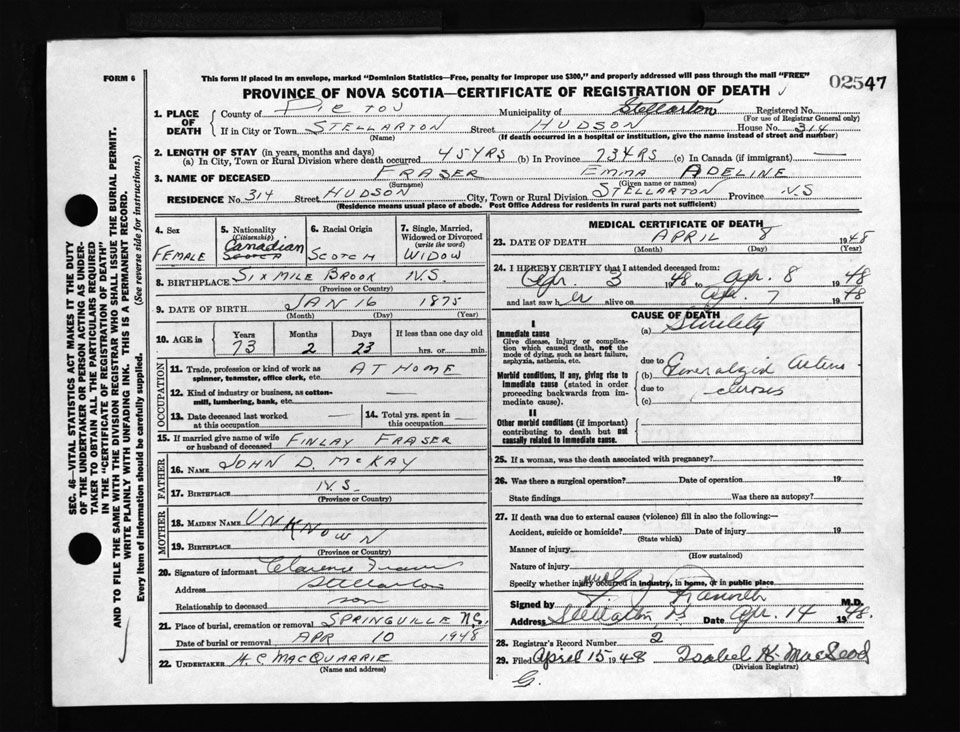 FORM 6
This form if placed in an envelope, marked "Dominion Statistics—Free, penalty for improper use $300," and properly addressed will pass through the mail "FREE"
02547
PROVINCE OF NOVA SCOTIA—CERTIFICATE OF REGISTRATION OF DEATH
1. PLACE OF DEATH
County of PICTOU Municipality of Stellarton Registered No.
(For use of Registrar General only)
If in City or Town STELLARTON Street HUDSON House No. 314
(Name) (If death occurred in a hospital or institution, give the name instead of street and number)
2. LENGTH OF STAY (in years, months and days)
(a) In City, Town or Rural Division where death occurred 45 YRS (b) In Province 73 YRS (c) In Canada (if immigrant) —
3. NAME OF DECEASED FRASER EMMA ADELINE
(Surname) (Given name or names)
RESIDENCE No. 314 Street HUDSON City, Town or Rural Division STELLARTON Province N.S
(Residence means usual place of abode. Post Office Address for residents in rural parts not sufficient)
4. Sex
FEMALE
5. Nationality
(Citizenship)
Canadian
SCOTCH
6. Racial Origin
SCOTCH
7. Single, Married, Widowed or Divorced
(write the word)
WIDOW
8. BIRTHPLACE SIX MILE BROOK N.S.
(Province or Country)
9. DATE OF BIRTH JAN 16 1875
(Month) (Day) (Year)
10. AGE in
Years Months Days If less than one day old
73 2 23 hrs. or min.
OCCUPATION
11. Trade, profession or kind of work as AT HOME
spinner, teamster, office clerk, etc.
12. Kind of industry or business, as cotton-mill, lumbering, bank, etc. —
13. Date deceased last worked at this occupation
14. Total yrs. spent in this occupation
15. If married give name of wife or husband of deceased FINLAY FRASER
FATHER
16. NAME JOHN D. McKAY
17. BIRTHPLACE N.S.
(Province or Country)
MOTHER
18. MAIDEN NAME UNKNOWN
19. BIRTHPLACE
(Province or Country)
20. Signature of informant Clarence Fraser
Address Stellarton
Relationship to deceased son
21. Place of burial, cremation or removal SPRINGVILLE N.S.
Date of burial or removal APR 10 1948
22. UNDERTAKER H.C MACQUARRIE
(Name and address)
MEDICAL CERTIFICATE OF DEATH
23. DATE OF DEATH APRIL 8 1948
(Month) (Day) (Year)
24. I HEREBY CERTIFY that I attended deceased from:
Apr. 3 1948 to Apr. 8 1948
and last saw her alive on Apr. 7 1948
CAUSE OF DEATH
I
Immediate cause (a)
Give disease, injury or complication which caused death, not the mode of dying, such as heart failure, asphyxia, asthenia, etc.
due to
Morbid conditions, if any, giving rise to immediate cause (stated in order proceeding backwards from immediate cause).
(b) Generalized Arterio
due to clerosis
(c)
II
Other morbid conditions (if important) contributing to death but not causally related to immediate cause.
25. If a woman, was the death associated with pregnancy?
26. Was there a surgical operation? Date of operation 19
State findings Was there an autopsy?
27. If death was due to external causes (violence) fill in also the following:—
Accident, suicide or homicide? Date of injury 19
(State which)
Manner of injury
(How sustained)
Nature of injury
Specify whether injury occurred in industry, in home, or in public place
Signed by M.D.
Address Stellarton NS Date Apr. 14 1948.
28. Registrar's Record Number 2
29. Filed April 15 1948 Isobel K. MacLeod
(Division Registrar)
G.
SEC. 46—VITAL STATISTICS ACT MAKES IT THE DUTY
OF THE UNDERTAKER OR PERSON ACTING AS UNDER-
TAKER TO OBTAIN ALL THE PARTICULARS REQUIRED
IN THE "CERTIFICATE OF REGISTRATION OF DEATH"
AND TO FILE THE SAME WITH THE DIVISION REGISTRAR WHO SHALL ISSUE THE BURIAL PERMIT.
WRITE PLAINLY WITH UNFADING INK. THIS IS A PERMANENT RECORD.
Every item of information should be carefully supplied. (See reverse side for instructions.)